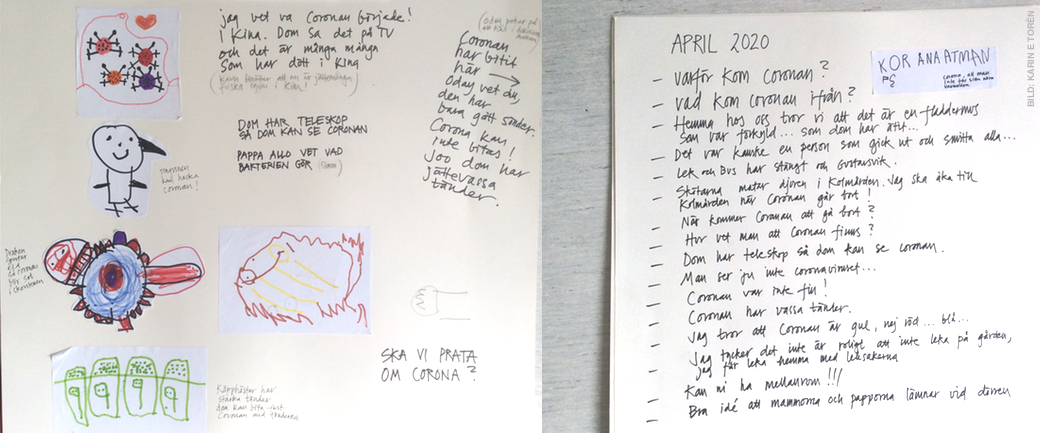 jag vet va Coronan började!
i Kina. Dom sa det på TV
och det är många många
som har dött i Kina
DOM HAR TELESKOP
SÅ DOM KAN SE CORONAN
PAPPA ALLO VET VAD
BAKTERIEN GÖR
Coronan
har bitit
här →
Oday vet du,
den har
bara gått sönder.
Corona kan
inte bitas!
joo dom har
jättevassa
tänder.
coronan!
SKA VI PRATA
OM CORONA?
Käpphästar har
starka tänder
dom kan bita
Coronan med tänderna
APRIL 2020
KORANAATMAN
– varför kom coronan?
– vad kom coronan ifrån?
– Hemma hos oss tror vi att det är en fladdermus
som var förkyld... som dom har ätit...
– Det var kanske en person som gick ut och smitta alla...
– Lek och Bus har stängt och Gustavsvik.
– Skötarna matar djuren i Kolmården. Jag ska åka till
Kolmården när Coronan går bort!
– När kommer Coronan att gå bort?
– Hur vet man att Coronan finns?
– Dom har teleskop så dom kan se coronan.
– Man ser ju inte coronaviruset...
– Coronan var inte fin!
– Coronan har vassa tänder.
– Jag tror att Coronan är gul, nej röd... blå...
– Jag tycker det inte är roligt att inte leka på gården,
jag får leka hemma med leksakerna
– Kan ni ha mellanrum!!!
– Bra idé att mammorna och papporna lämnar vid dörren
BILD: KARIN E TORÉN